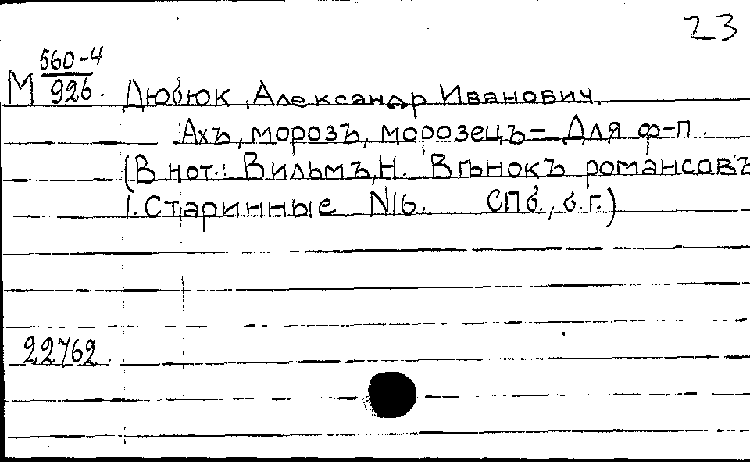 23
М 560-4
926. Дюбюк, Александр Иванович.
Ахъ, морозъ, морозецъ – Для ф-п.
(В нот.: Вильмъ, Н. Вѣнокъ романсовъ
1. Старинные №6. СПб, б.г.)
22762.